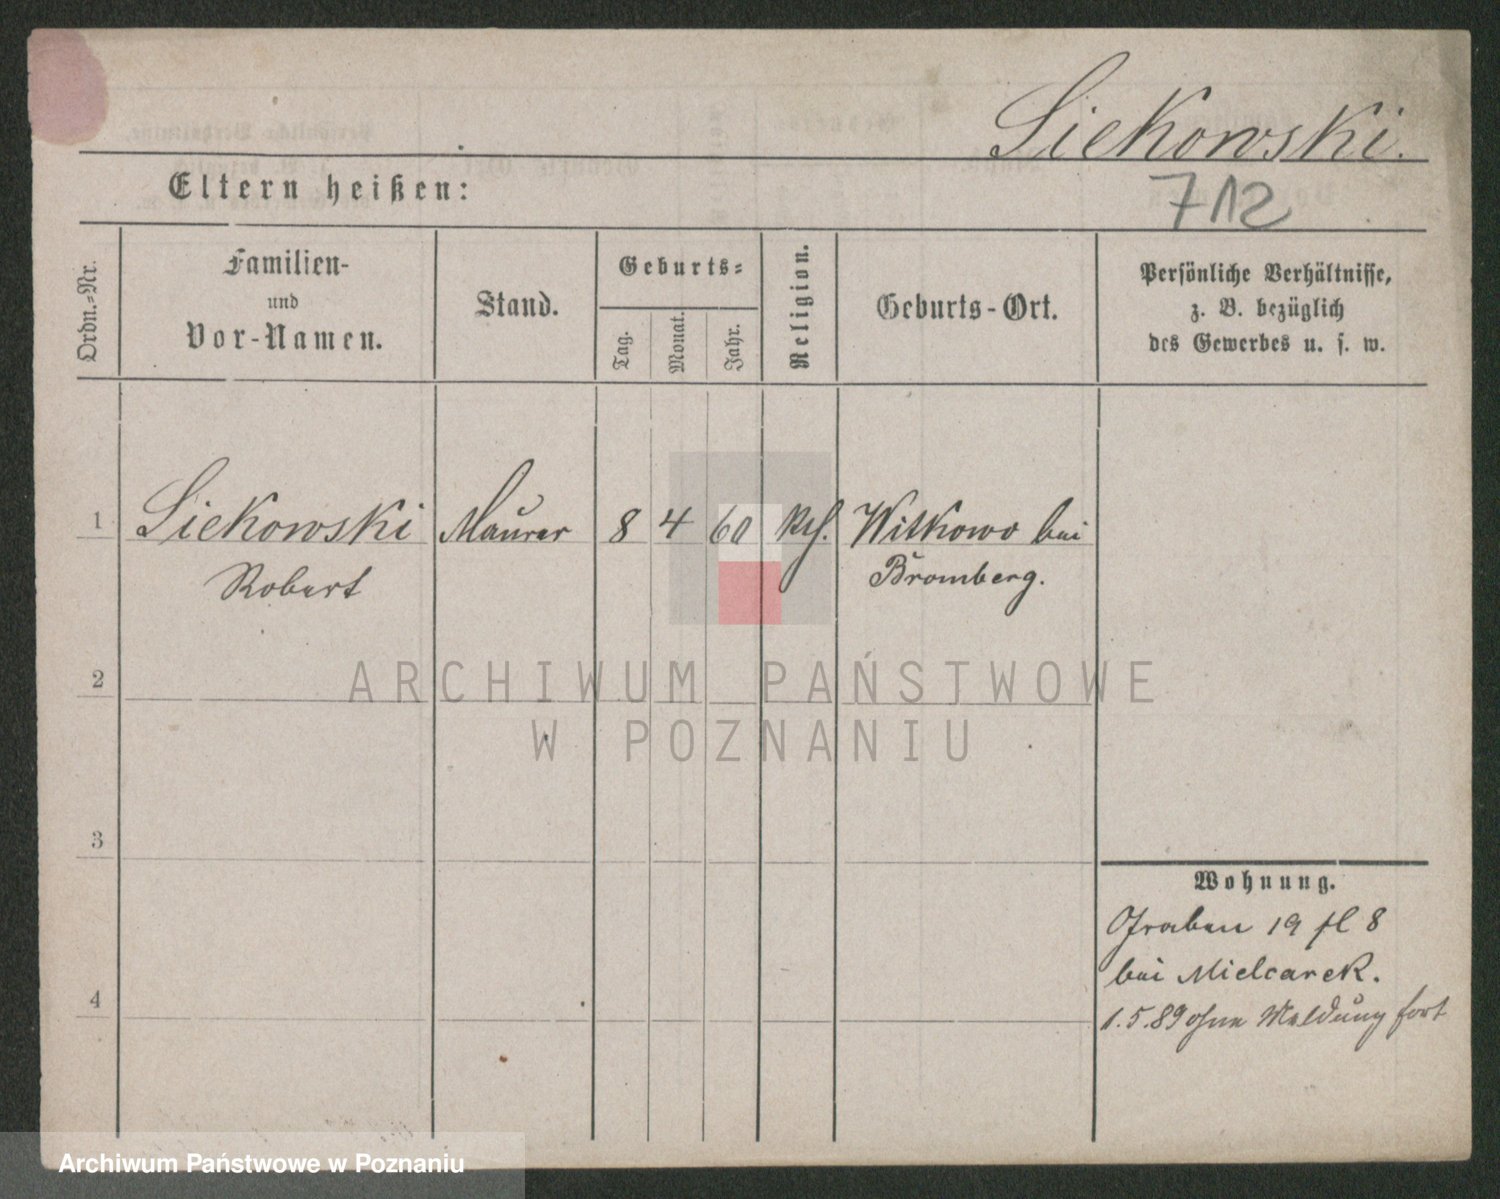 Siekowski.
Eltern heißen:
712
Ordn.-Nr.
Familien-
und
Vor-Namen.
Stand.
Geburts-
Tag.
Monat.
Jahr.
Religion.
Geburts-Ort.
Persönliche Verhältnisse,
z. B. bezüglich
des Gewerbes u. s. w.
1 Siekowski Maurer 8 4 60 Kth. Witkowo bei
Robert Bromberg.
2
ARCHIWUM PAŃSTWOWE
W POZNANIU
3
Wohnung.
Graben 19 fl 8
bei Mielcarek.
4
1.5.89 ohne Meldung fort
Archiwum Państwowe w Poznaniu